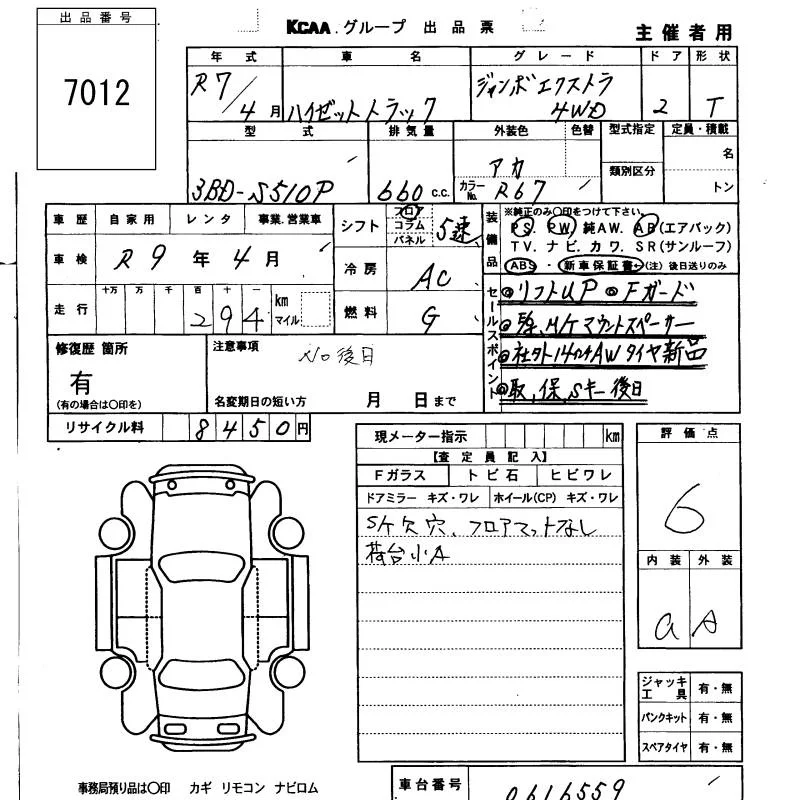 出品番号
7012
KCAA グループ 出品票
主催者用
年式 車名 グレード ドア 形状
R7/4月 ハイゼットトラック ジャンボエクストラ 4WD 2 T
型式 排気量 外装色 色替 型式指定 定員・積載
類別区分
3BD-S510P 660 c.c. アカ カラーNo. R67 名
トン
車歴 自家用 レンタ 事業.営業車
車検 R9年4月
走行 十万 万 千 百 十 一
294 km
マイル
シフト フロア コラム パネル 5速
冷房 AC
燃料 G
装備品 ※純正のみ○印をつけて下さい。
PS. PW. 純AW. AB(エアバック)
TV. ナビ. カワ. SR(サンルーフ)
ABS・新車保証書←(注)後日送りのみ
セールスポイント
◎リフトUP ◎Fガード
M/Kマウントスペーサー
◎社外14inch AWタイヤ新品
◎取,保,Sキー後日
修復歴 箇所
有
(有の場合は○印を)
注意事項
No後日
名変期日の短い方 月 日まで
リサイクル料 8450円
現メーター指示 km
【査定員記入】
Fガラス トビ石 ヒビワレ
ドアミラー キズ・ワレ ホイール(CP) キズ・ワレ
Sケ欠穴、フロアマットなし
荷台小A
評価点
6
内装 外装
a A
ジャッキ工具 有・無
パンクキット 有・無
スペアタイヤ 有・無
事務局預り品は○印 カギ リモコン ナビロム
車台番号 0616559